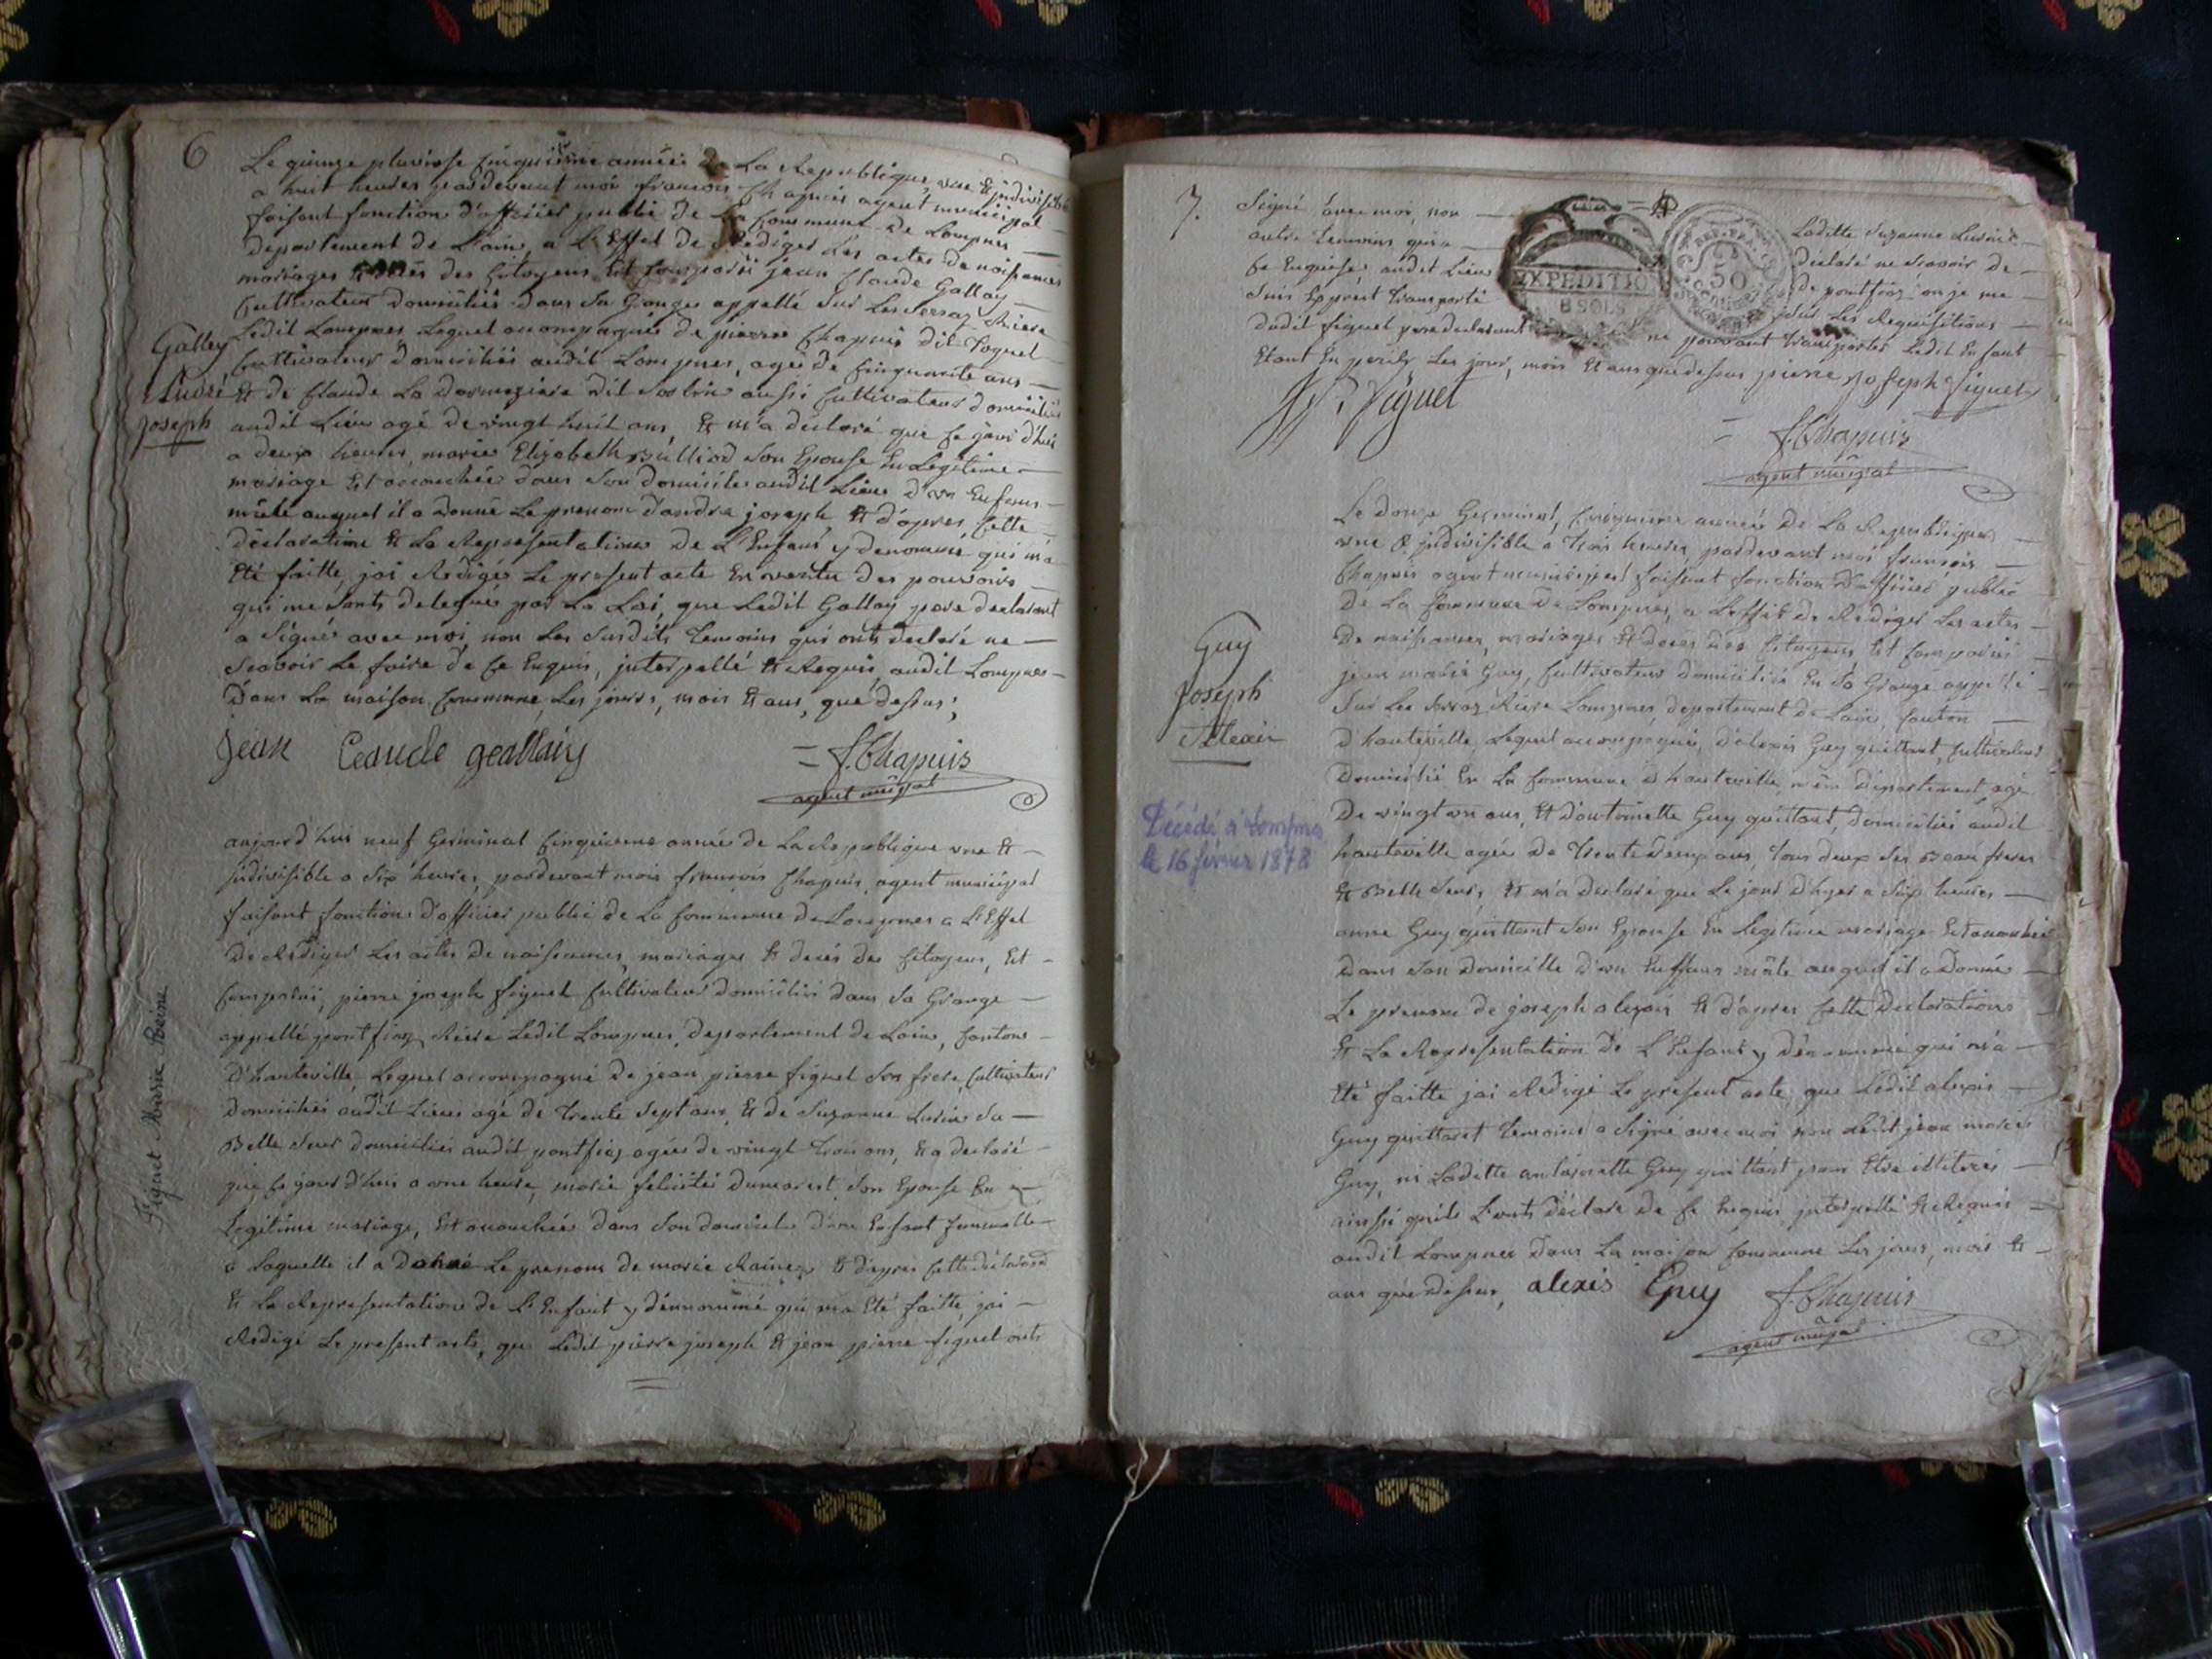 6
Le quinze pluviose Cinquieme année de La Republique, une & jndivisible
a huit heures pardevant moi francois Chapuis agent municipal
faisant fonction d'officier public de La Commune de Lompnes
departement de L'ain, a L'Effet de Rediger Les actes de naissances
mariages & décès des Citoyens Est Comparu jean Claude Gallay
Cultivateur domicilié dans Sa Grange appellé Sur Les Serraz Riere
Ledit Lompnes Lequel accompagné de pierre Chapuis dit
Cultivateur domicilié audit Lompnes, agé de Cinquante ans
& de Claude La dit aussi Cultivateur domicilié
audit Lieu agé de vingt huit ans, & m'a déclaré que Ce jour d'hui
a deux heures, marie Elizabeth Bulliod Son Epouse En Legitime
mariage Est accouchée dans Son domicile audit Lieu d'un Enfans
mâle auquel il a donné Le prenom d'andré joseph & d'apres Cette
déclaration & La Representation de L'Enfant y denommé qui m'a
Eté faitte, jai Redigé Le present acte En vertu des pouvoirs
qui me Sonts delegués par La Loi, que Ledit Gallay pere declarant
a Signé avec moi, non Les Susdits temoins qui onts declaré ne
Scavoir Le faire de Ce Enquis, jnterpellé & Requis, audit Lompnes
Dans La maison Commune, Les jours, mois & ans, que dessus;
Galley
André
Joseph
jean Ceaude geallay
f. Chapuis
agent munipal
aujourd'hui neuf Germinal Cinquieme année de La Republique une &
jndivisible a Six heures, pardevant moi francois Chapuis, agent municipal
faisant fonction d'officier public de La Commune de Lompnes a L'Effet
de Rediger Les actes de naissances, mariages & decés des Citoyens, Est
Comparu, pierre joseph figuet Cultivateur domicilié dans Sa Grange
appellé pontfiaz Riere Ledit Lompnes, departement de Lain, Canton
d'hauteville, Lequel accompagné de jean pierre figuet Son frere, Cultivateur
domicilié audit Lieu agé de trente Sept ans, & de Suzanne Sa
Belle Seur domiciliée audit pontfiaz agée de vingt trois ans, & a declaré
que Ce jour d'hui a une heure, marie felicité dumarest Son Epouse En
Legitime mariage, Est accouchée dans Son domicile d'une Enfant femelle
a Laquelle il a donné Le prenom de marie Raine, & d'apres Cette déclaration
& La Representation de L'Enfant y dénnommé qui m'a Eté faitte, jai
Redigé Le present acte, que Ledit pierre joseph & jean pierre figuet onts
Figuet Marie Reine
7.
Signé avec moi, non Laditte Suzanne
autre temoin qui a déclaré ne Scavoir de
Ce Enquise audit Lieu de pontfiaz ou je me
Suis Exprèt transporté Sur Les Requisitions
dudit figuet pere declarant ne pouvant transporter Ledit Enfant
Etant En perils Les jour, mois & ans que dessus pierre joseph figuet
EXPEDITIO
8 SOLS
REP. FRA.
50
J. P. figuet
f. Chapuis
agent munipal
Le douze Germinal, Cinquieme année de La Republique
une & jndivisible a trois heures pardevant moi francois
Chapuis agent municipal faisant fonction d'officier public
de La Commune de Lompnes, a L'effet de Rédiger Les actes
de naissances, mariages & deces des Citoyens Est Comparu
jean marie Guy, Cultivateur domicilié En Sa Grange appellé
Sur Les Serraz Riere Lompnes, departement de Lain, Canton
d'hauteville, Lequel accompagné, d'alexis Guy quittant, Cultivateur
domicilié En La Commune d'hauteville même departement, agé
de vingt un ans, & d'antoinette Guy quittant, domiciliée audit
hauteville agée de trente deux ans, tous deux Ses Beau freres
& Belle Seur, & m'a declaré que Le jour d'hyer a Six heures
anne Guy quittant Son Epouse En Legitime mariage Est accouchée
dans Son domicille d'un Enffans mâle auquel il a donné
Le prenom de joseph alexis & d'apres Cette declarations
& La Representation de L'Enfant y dénommé qui m'a
Eté faitte jai Redigé Le present acte, que Ledit alexis
Guy quittant temoins a Signé avec moi non Ledit jean marie
Guy, ni Laditte antoinette Guy quittant pour Etre illiteres
ainssi quils L'onts déclaré de Ce Enquis jnterpellé & Requis
audit Lompnes dans La maison Commune Les jours, mois &
ans que dessus, alexis Guy f. Chapuis
agent munipal
Guy
Joseph
Alexis
Décédé à Lompnes
le 16 février 1878